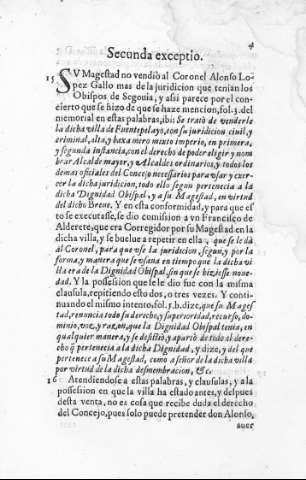 4
Secunda exceptio.
15 SV Magestad no vendio al Coronel Alonso Lo-
pez Gallo mas de la juridicion que tenian los
Obispos de Segouia, y assi parece por el con-
cierto que se hizo de que se haze mencion, fol. 3. del
memorial en estas palabras, ibi: Se trato de venderle
la dicha villa de Fuentepelayo, con su juridicion ciuil, y
criminal, alta, y baxa mero mixto imperio, en primera,
y segunda instancia, con el derecho de poder elegir y nom
brar Alcalde mayor, y Alcaldes ordinarios, y todos los
demas oficiales del Concejo necessarios para vsar y exer-
cer la dicha juridicion, todo ello segun pertenecia a la
dicha Dignidad Obispal, y a su Magestad, en virtud
del dicho Breue. Y en esta conformidad, y para que es
to se executasse, se dio comission a vn Francisco de
Alderete, que era Corregidor por su Magestad en la
dicha villa, y se buelue a repetir en ella, que se le dà
al Coronel, para que vse la juridicion, segun, y por la
forma, y manera que se vsaua en tiempo que la dicha vi
lla era de la Dignidad Obispal, sin que se hiziesse noue-
dad. Y la possession que le le dio fue con la misma
clausula, repitiendo esto dos, o tres vezes. Y conti-
nuando el mismo intento, fol. 5. b. dize, que su Mages
tad, renuncia todo su derecho, y superioridad, recurso, do-
minio, voz, y razon, que la Dignidad Obispal tenia, en
qualquier manera, y se desistio, y aparto de todo el dere-
cho q̃ pertenecia a la dicha Dignidad, y dizo, y del que
pertenece a su Magestad, como a señor de la dicha villa
por virtud de la dicha desmembracion, &c.
16 Atendiendose a estas palabras, y clausulas, y a la
possession en que la villa ha estado antes, y despues
desta venta, no es cosa que recibe duda el derecho
del Concejo, pues solo puede pretender don Alonso,
auer